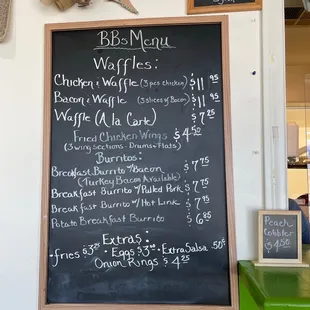 BBs Menu
Waffles:
Chicken & Waffle (3 pcs chicken) $11.95
Bacon & Waffle (3 slices of Bacon) $11.95
Waffle (A la Carte) $7.25
Fried Chicken Wings $4.50
(3 wing sections - Drums & Flats)
Burritos:
Breakfast Burrito w/Bacon $7.75
(Turkey Bacon Available)
Breakfast Burrito w/Pulled Pork $7.75
Breakfast Burrito w/Hot Link $7.95
Potato Breakfast Burrito $6.95
Extras:
•fries $3.25 •Eggs $3.00 •Extra Salsa 50¢
Onion Rings $4.25
Peach
Cobbler
$4.50